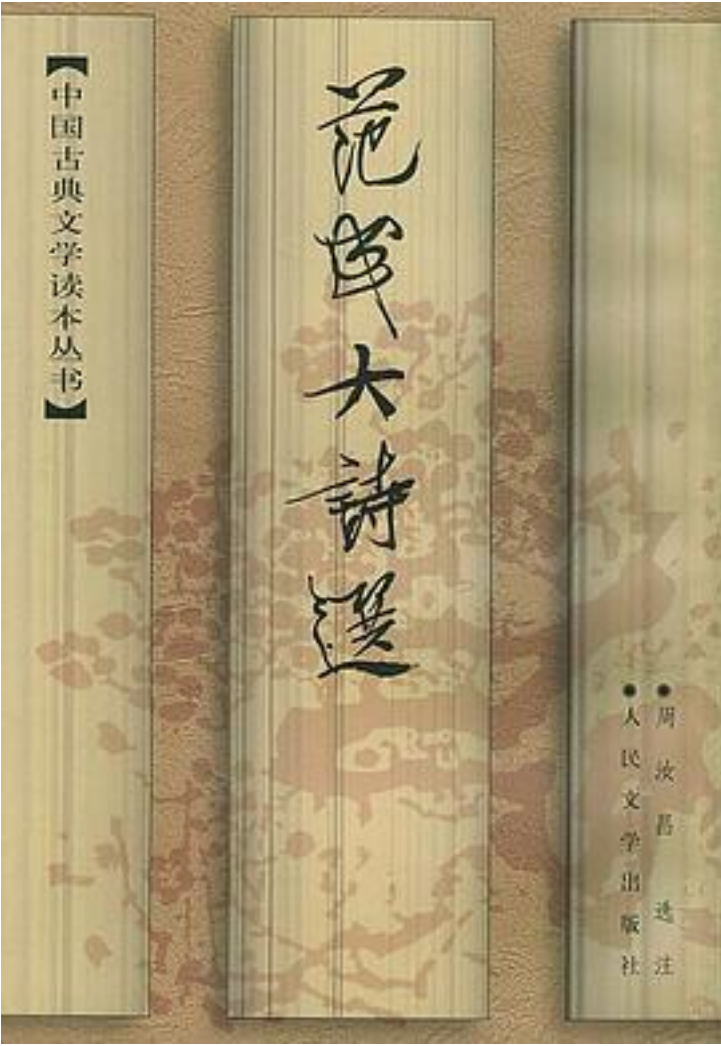 【中国古典文学读本丛书】
范成大詩選
●周汝昌 选注
●人民文学出版社